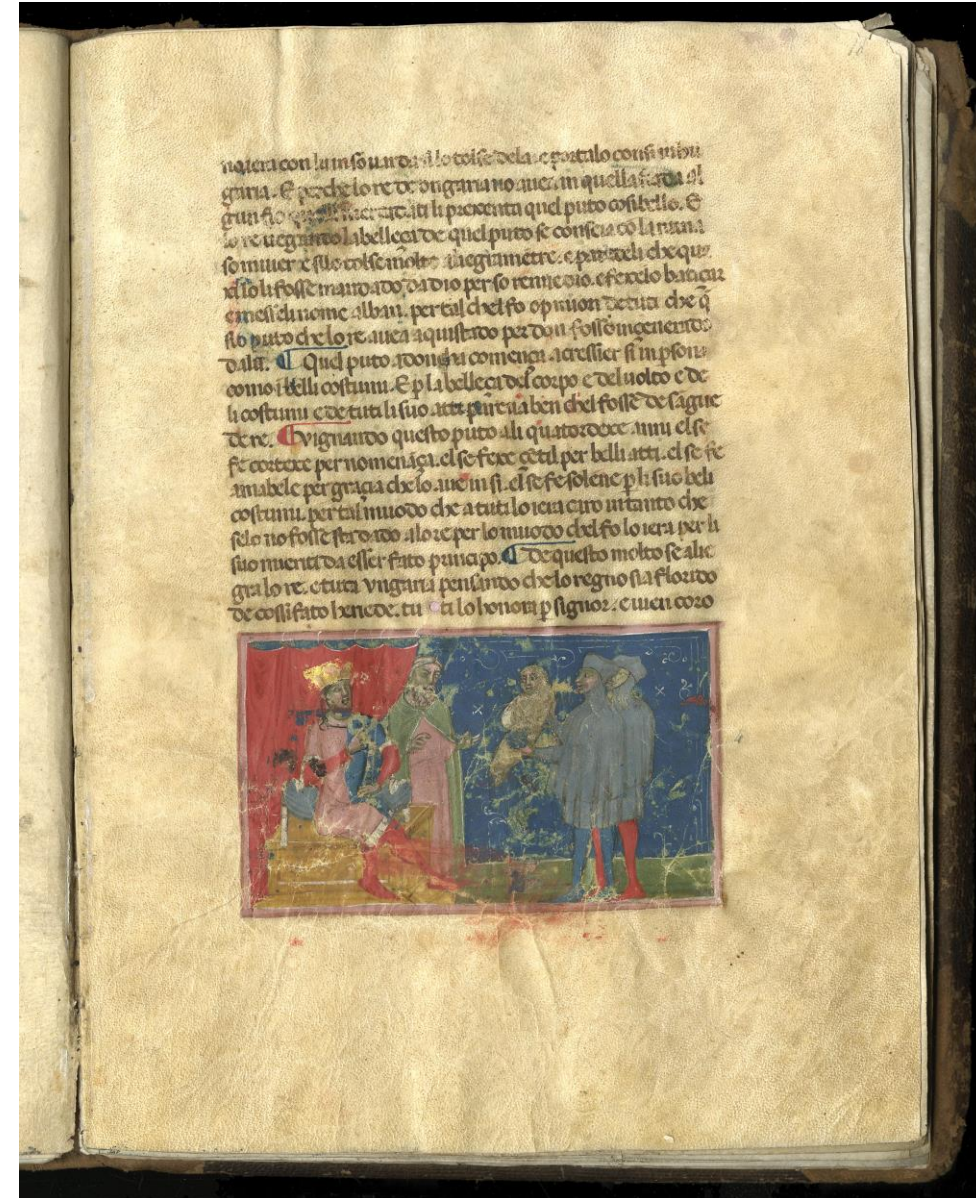 con la in soa uarda si lo tolse de la e portalo consi in hu
garia. E perche lo re de ongaria no auea in quella fiada al
gun fio li presenta quel puto cosi bello. E
lo re uegando la belleça de quel puto se conseia cό la raina
so muier e si lo tolse molto alegramētre. e pareuali che que
lo li fosse mandado da dio per so rem̄edio. e fexelo batiçar
e messeli nome alban. per tal chel fo opinion de tuti che q̄
sto puto che lo re auea aquistado per don fosse ingenerado
da lu. ¶ Quel puto adoncha comença a cressier si in p̱sona
como i belli costumi. E p̱ la belleça del corpo e del uolto e de
li costumi e de tuti li suo atti pareua ben chel fosse de sāgue
de re. ¶ Vignando questo puto ali quatordexe anni el se
fe cortexe per nomenāça. el se fexe çētil per belli atti. el se fe
amabele per gracia che lo aue in si. el se fe solene p̱ li suo beli
costumi. per tal muodo che a tuti lo iera caro in tanto che
selo no fosse sta dado alo re per lo muodo chel fo lo iera per li
suo meriti da esser fato principo. ¶ De questo molto se ale
gra lo re. e tuta Vngaria pensando che lo regno sia florido
de cossi fato herede. tu ti lo honora p̱ signor. e uien coro